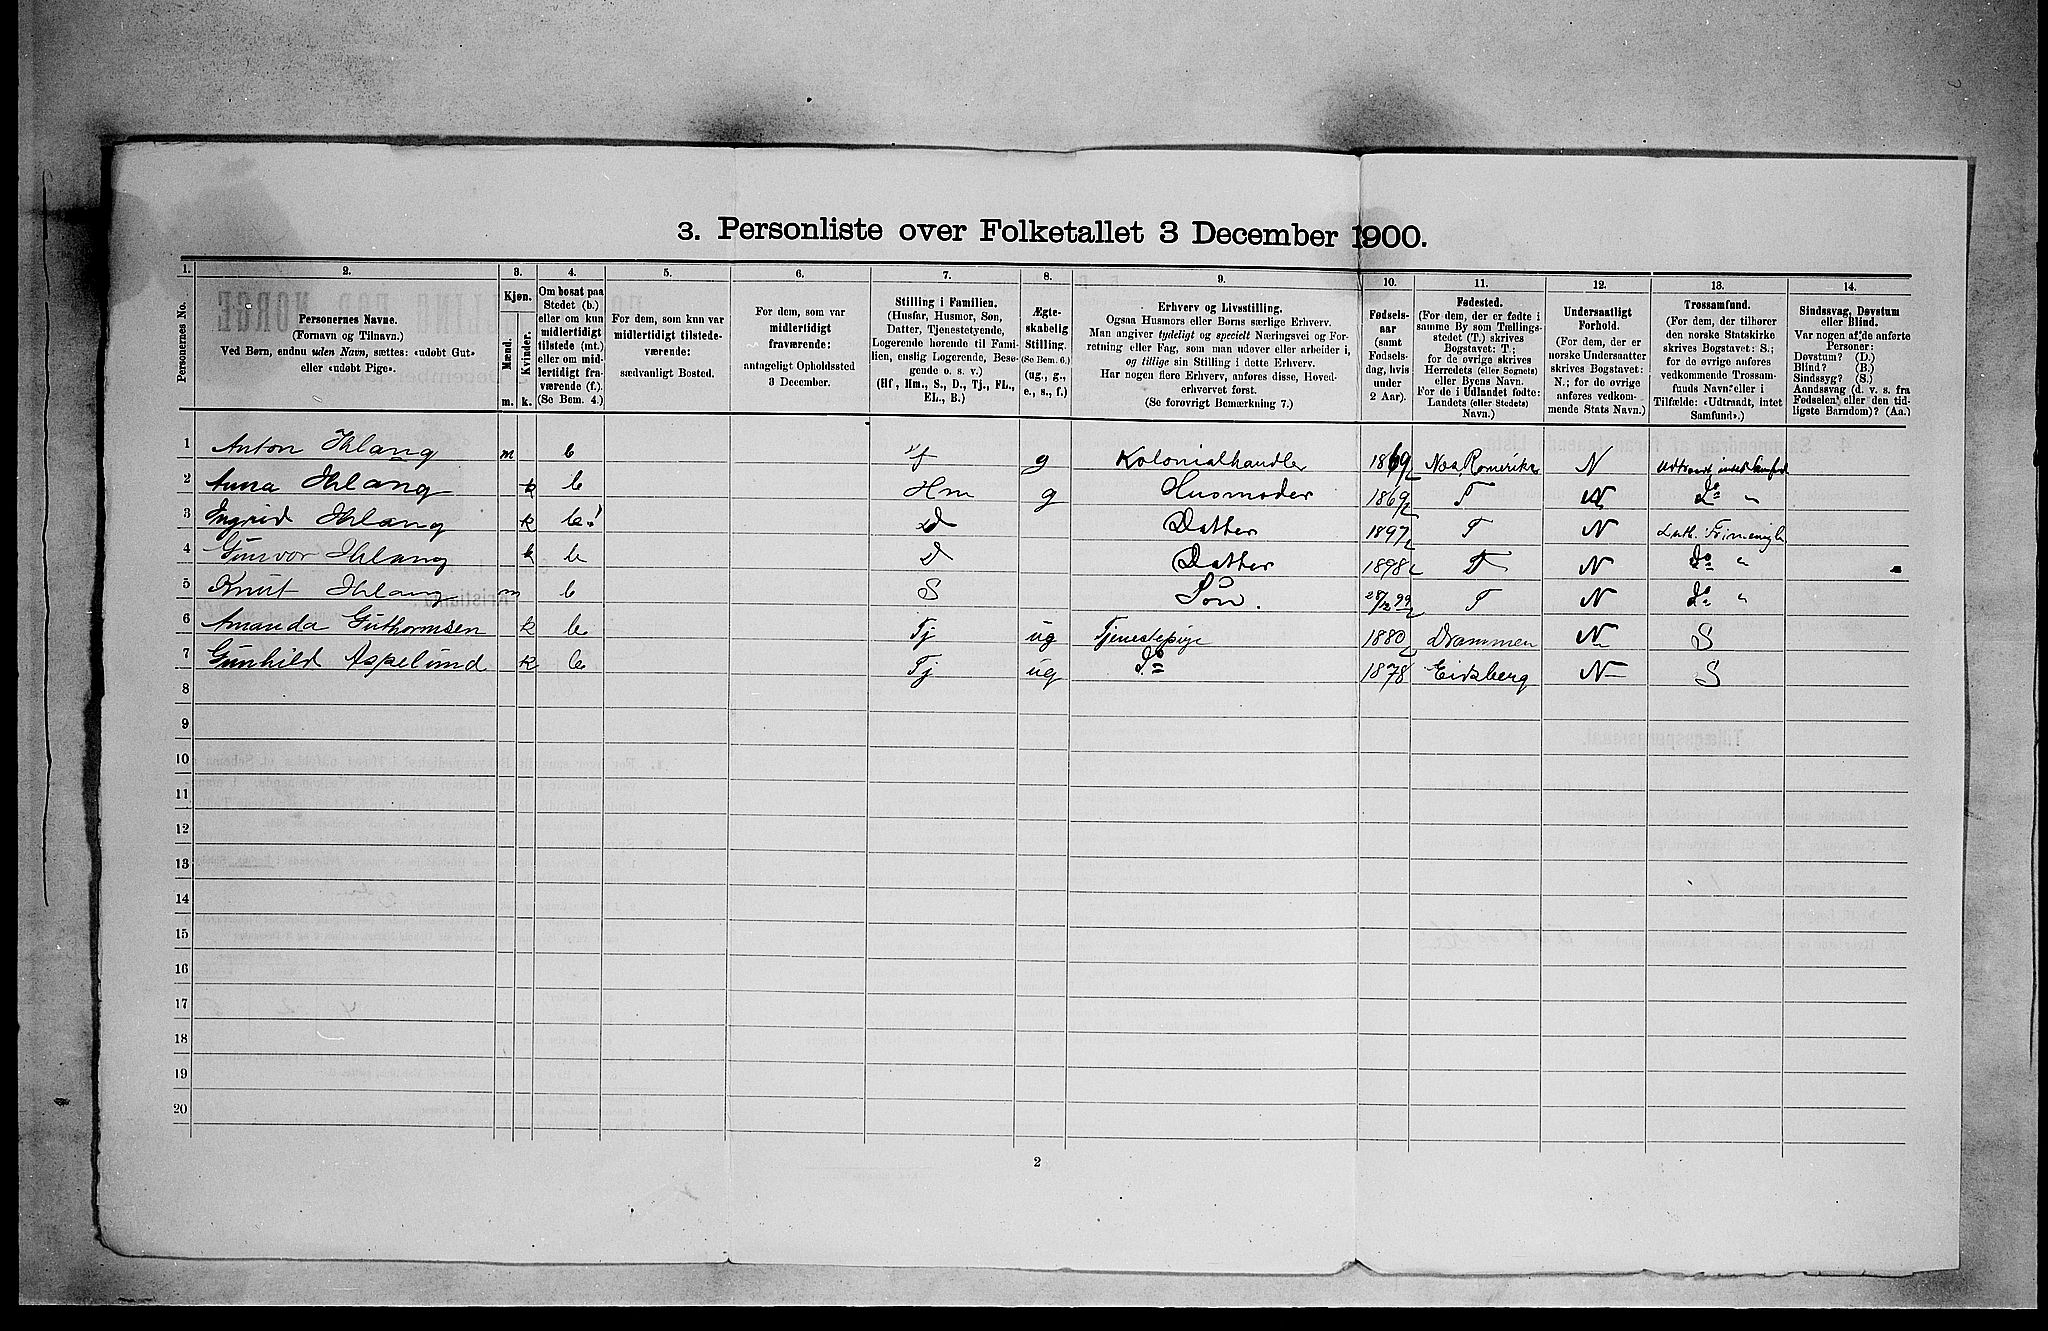 3. Personliste over Folketallet 3 December 1900.
1. 2. 3. 4. 5. 6. 7. 8. 9. 10. 11. 12. 13. 14.
Personernes No.
Personernes Navne.
(Fornavn og Tilnavn.)
Ved Børn, endnu uden Navn, sættes: «udøbt Gut»
eller «udøbt Pige».
Kjøn.
Mænd. Kvinder.
m. k.
Om bosat paa
Stedet (b.)
eller om kun
midlertidigt
tilstede (mt.)
eller om mid-
lertidigt fra-
værende (f.)
(Se Bem. 4.)
For dem, som kun var
midlertidigt tilstede-
værende:
sædvanligt Bosted.
For dem, som var
midlertidigt
fraværende:
antageligt Opholdssted
3 December.
Stilling i Familien.
(Husfar, Husmor, Søn,
Datter, Tjenestetyende,
Logerende hørende til Fami-
lien, enslig Logerende, Besø-
gende o. s. v.)
(Hf, Hm., S., D., Tj., FL.,
EL., B.)
Ægte-
skabelig
Stilling.
(Se Bem. 6.)
(ug., g.,
e., s., f.)
Erhverv og Livsstilling.
Ogsaa Husmors eller Børns særlige Erhverv.
Man angiver tydeligt og specielt Næringsvei og For-
retning eller Fag, som man udøver eller arbeider i,
og tillige sin Stilling i dette Erhverv.
Har nogen flere Erhverv, anføres disse, Hoved-
erhvervet først.
(Se forøvrigt Bemærkning 7.)
Fødsels-
aar
(samt
Fødsels-
dag, hvis
under
2 Aar).
Fødested.
(For dem, der er fødte i
samme By som Tællings-
stedet (T.) skrives
Bogstavet: T.;
for de øvrige skrives
Herredets (eller Sognets)
eller Byens Navn.
For de i Udlandet fødte:
Landets (eller Stedets)
Navn.)
Undersaatligt
Forhold.
(For dem, der er
norske Undersaatter
skrives Bogstavet:
N.; for de øvrige
anføres vedkom-
mende Stats Navn.)
Trossamfund.
(For dem, der tilhører
den norske Statskirke
skrives Bogstavet: S.;
for de øvrige anføres
vedkommende Trossam-
funds Navn eller i
Tilfælde: «Udtraadt, intet
Samfund».)
Sindssvag, Døvstum
eller Blind.
Var nogen af de anførte
Personer:
Døvstum? (D.)
Blind? (B.)
Sindssyg? (S.)
Aandssvag (d. v. s. fra
Fødselen eller den tid-
ligste Barndom)? (Aa.)
1 Anton Ihlang m b g Kolonialhandler 1869 Nes, Romerike N Udtraadt intet Samfud
2 Anna Ihlang k b Hm g Husmoder 1869 T N Do "
3 Ingrid Ihlang k b! D Datter 1897 T N Luth. Frimenigh
4 Gunvor Ihlang k b D Datter 1898 T N Do "
5 Knut Ihlang m b S Søn. 28/2 99 T N Do "
6 Amanda Guthormsen k b Tj ug Tjenestepige 1880 Drammen N S
7 Gunhild Aspelund k b Tj ug Do 1878 Eidsberg N S
8
9
10
11
12
13
14
15
16
17
18
19
20
2